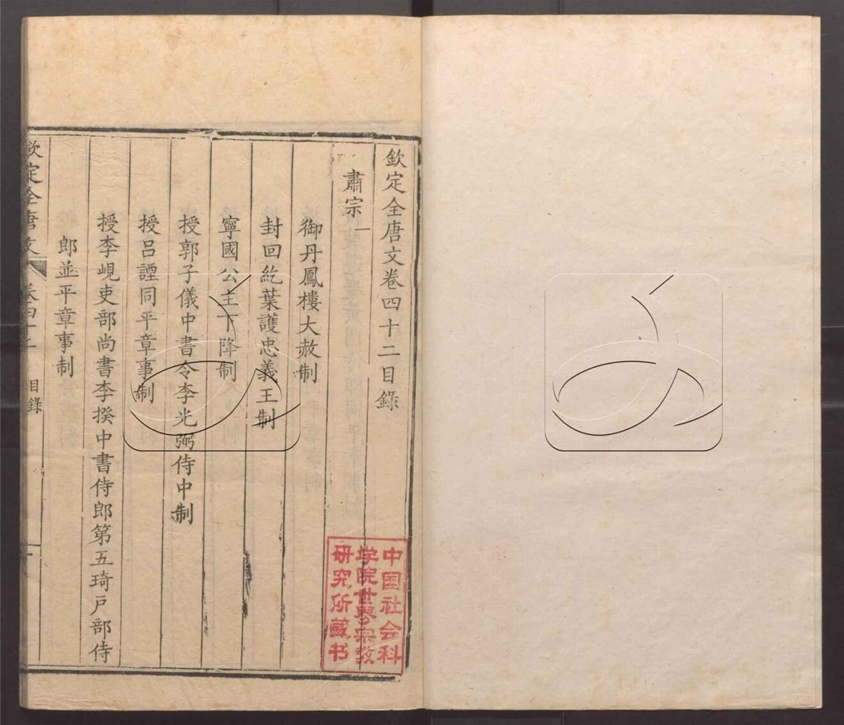 欽定全唐文卷四十二目錄
肅宗一
御丹鳳樓大赦制
封回紇葉護忠義王制
寧國公主下降制
授郭子儀中書令李光弼侍中制
授呂諲同平章事制
授李峴吏部尚書李揆中書侍郎第五琦戶部侍
郎並平章事制
欽定全唐文 卷四十二 目錄 一
中国社会科
学院世界宗教
研究所藏书